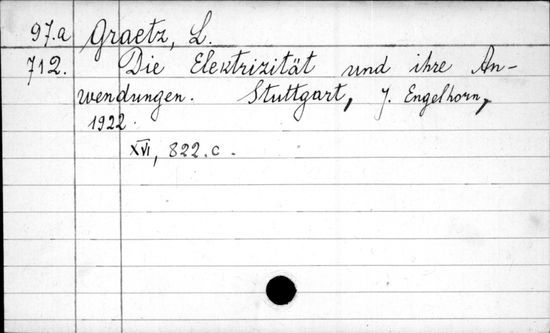 97.a Graetz, L.
712. Die Elektrizität und ihre An-
wendungen. Stuttgart, J. Engelhorn,
1922.
XVI, 822.c.